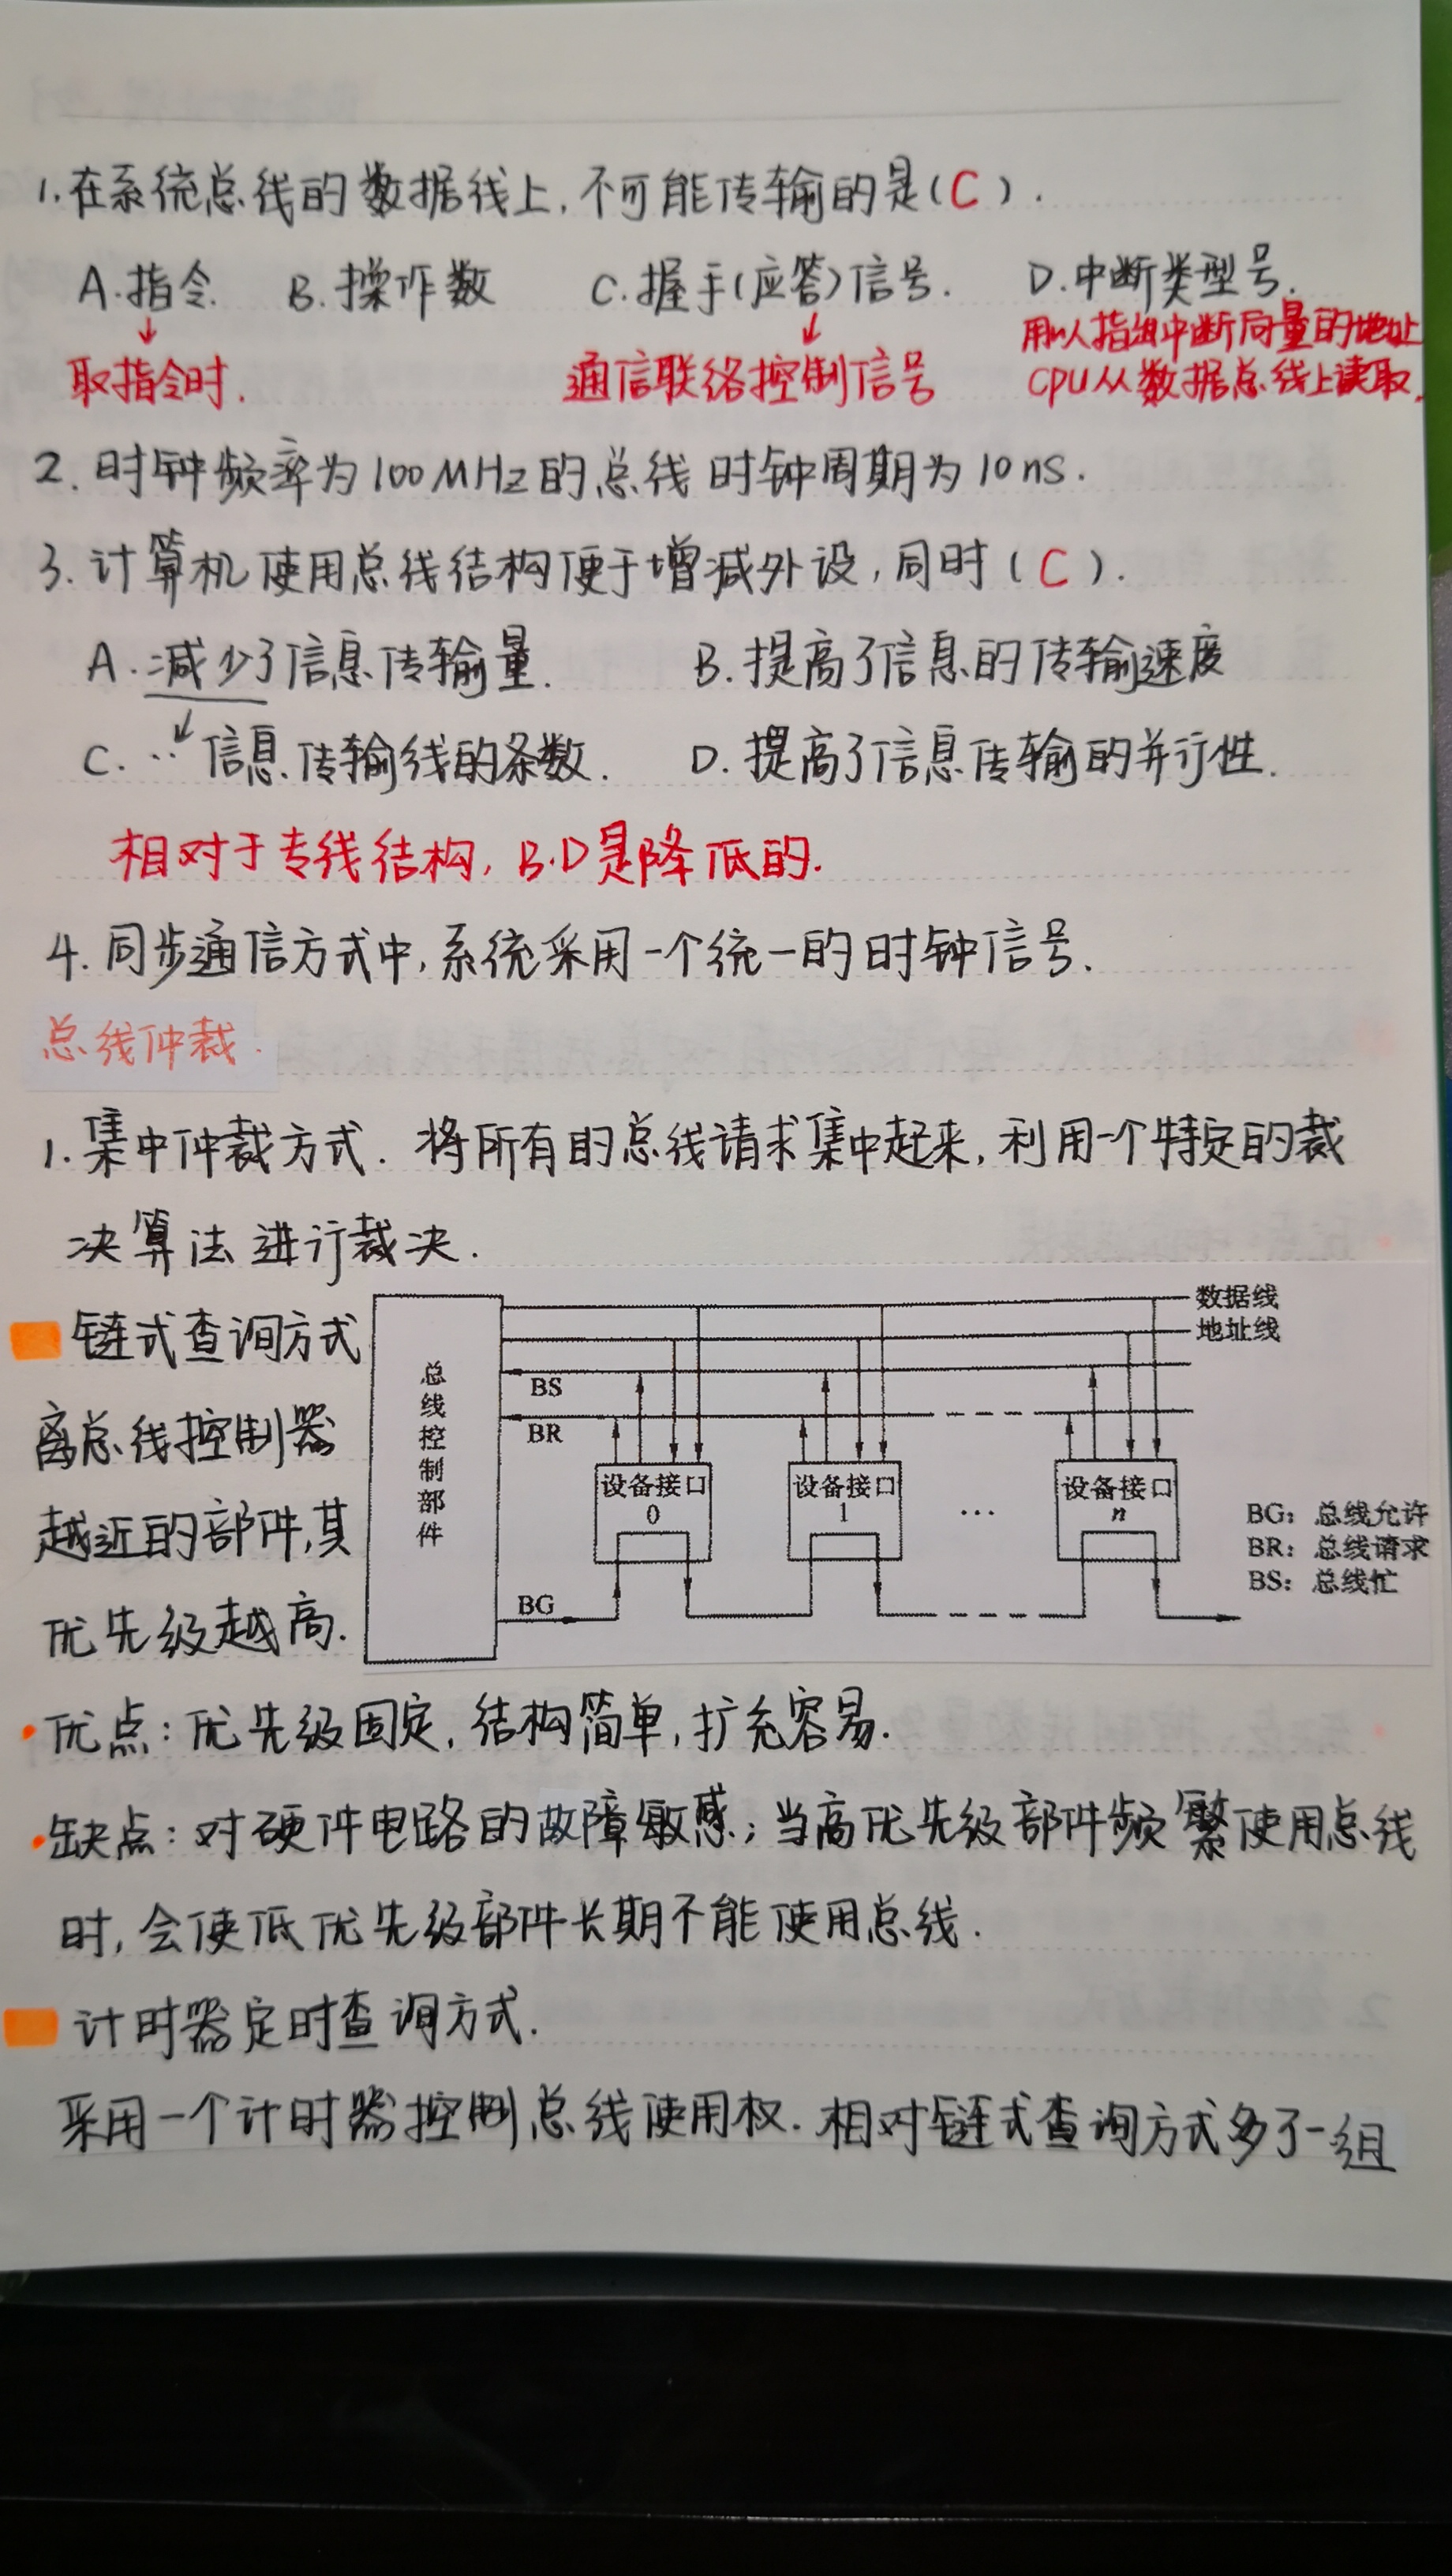 1.在系统总线的数据线上,不可能传输的是(C).
A.指令. B.操作数 C.握手(应答)信号. D.中断类型号.
取指令时. 通信联络控制信号 用以指出中断向量的地址
CPU从数据总线上读取.
2.时钟频率为100MHz的总线时钟周期为10ns.
3.计算机使用总线结构便于增减外设,同时(C).
A.减少了信息传输量. B.提高了信息的传输速度
C. ‥信息传输线的条数. D.提高了信息传输的并行性.
相对于专线结构,B.D是降低的.
4.同步通信方式中,系统采用一个统一的时钟信号.
总线仲裁.
1.集中仲裁方式.将所有的总线请求集中起来,利用一个特定的裁
决算法进行裁决.
链式查询方式
离总线控制器
越近的部件,其
优先级越高.
总线控制部件
数据线
地址线
BS
BR
设备接口 设备接口 设备接口
0 1 … n
BG
BG:总线允许
BR:总线请求
BS:总线忙
·优点:优先级固定,结构简单,扩充容易.
·缺点:对硬件电路的故障敏感;当高优先级部件频繁使用总线
时,会使低优先级部件长期不能使用总线.
计时器定时查询方式.
采用一个计时器控制总线使用权.相对链式查询方式多了一组